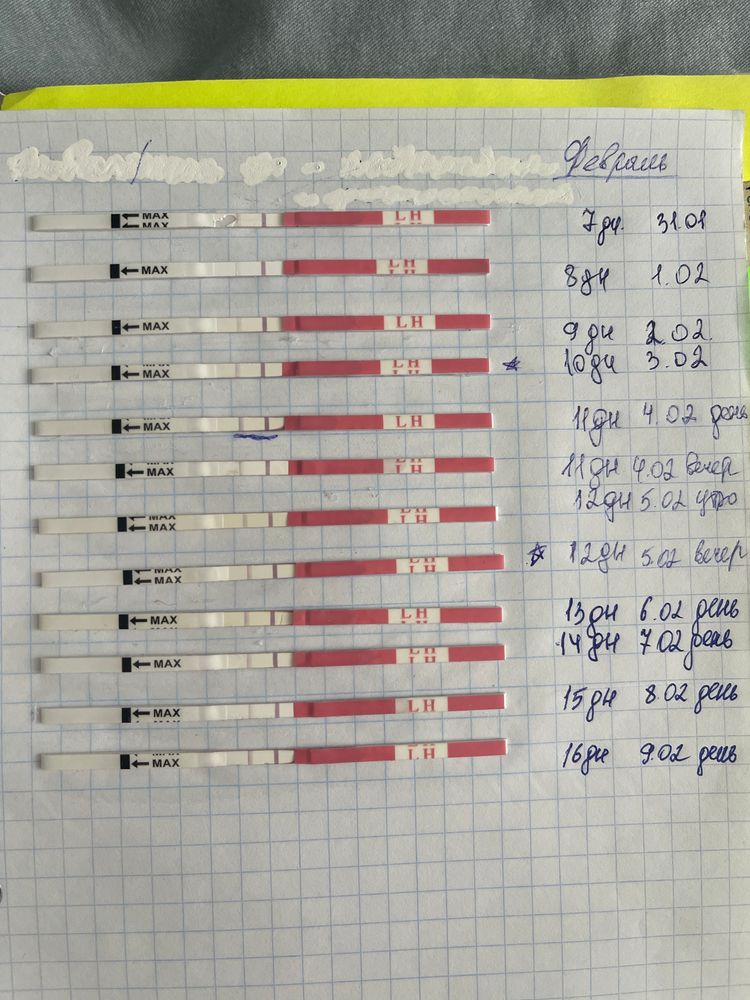 Февраль
MAX MAX LH 7дн. 31.01
MAX LH LH 8дн 1.02
MAX LH 9дн 2.02.
MAX LH LH 10дн 3.02
MAX LH 11дн 4.02 день
MAX LH LH 11дн 4.02 вечер
MAX LH LH 12дн 5.02 утро
MAX MAX LH LH 12дн 5.02 вечер
MAX LH 13дн 6.02 день
MAX LH LH 14дн 7.02 день
MAX LH 15дн 8.02 день
MAX LH LH 16дн 9.02 день